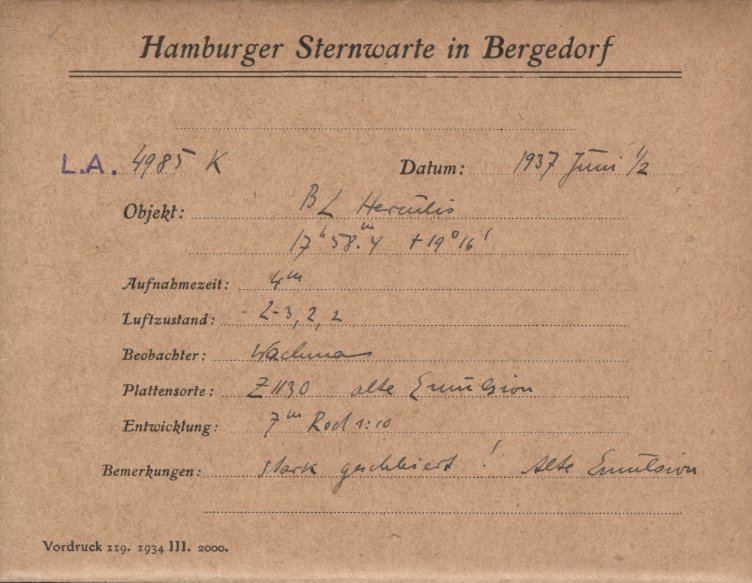 Hamburger Sternwarte in Bergedorf
L.A. 4985 K Datum: 1937 Juni 1/2
Objekt: BL Herculis
17ʰ58.ᵐ4 +19°16'
Aufnahmezeit: 4ᵐ
Luftzustand: 2-3, 2, 2
Beobachter: Wachmann
Plattensorte: Z 1130 alte Emulsion
Entwicklung: 7ᵐ Rod 1:10
Bemerkungen: stark geschleiert! Alte Emulsion
Vordruck 119. 1934 III. 2000.